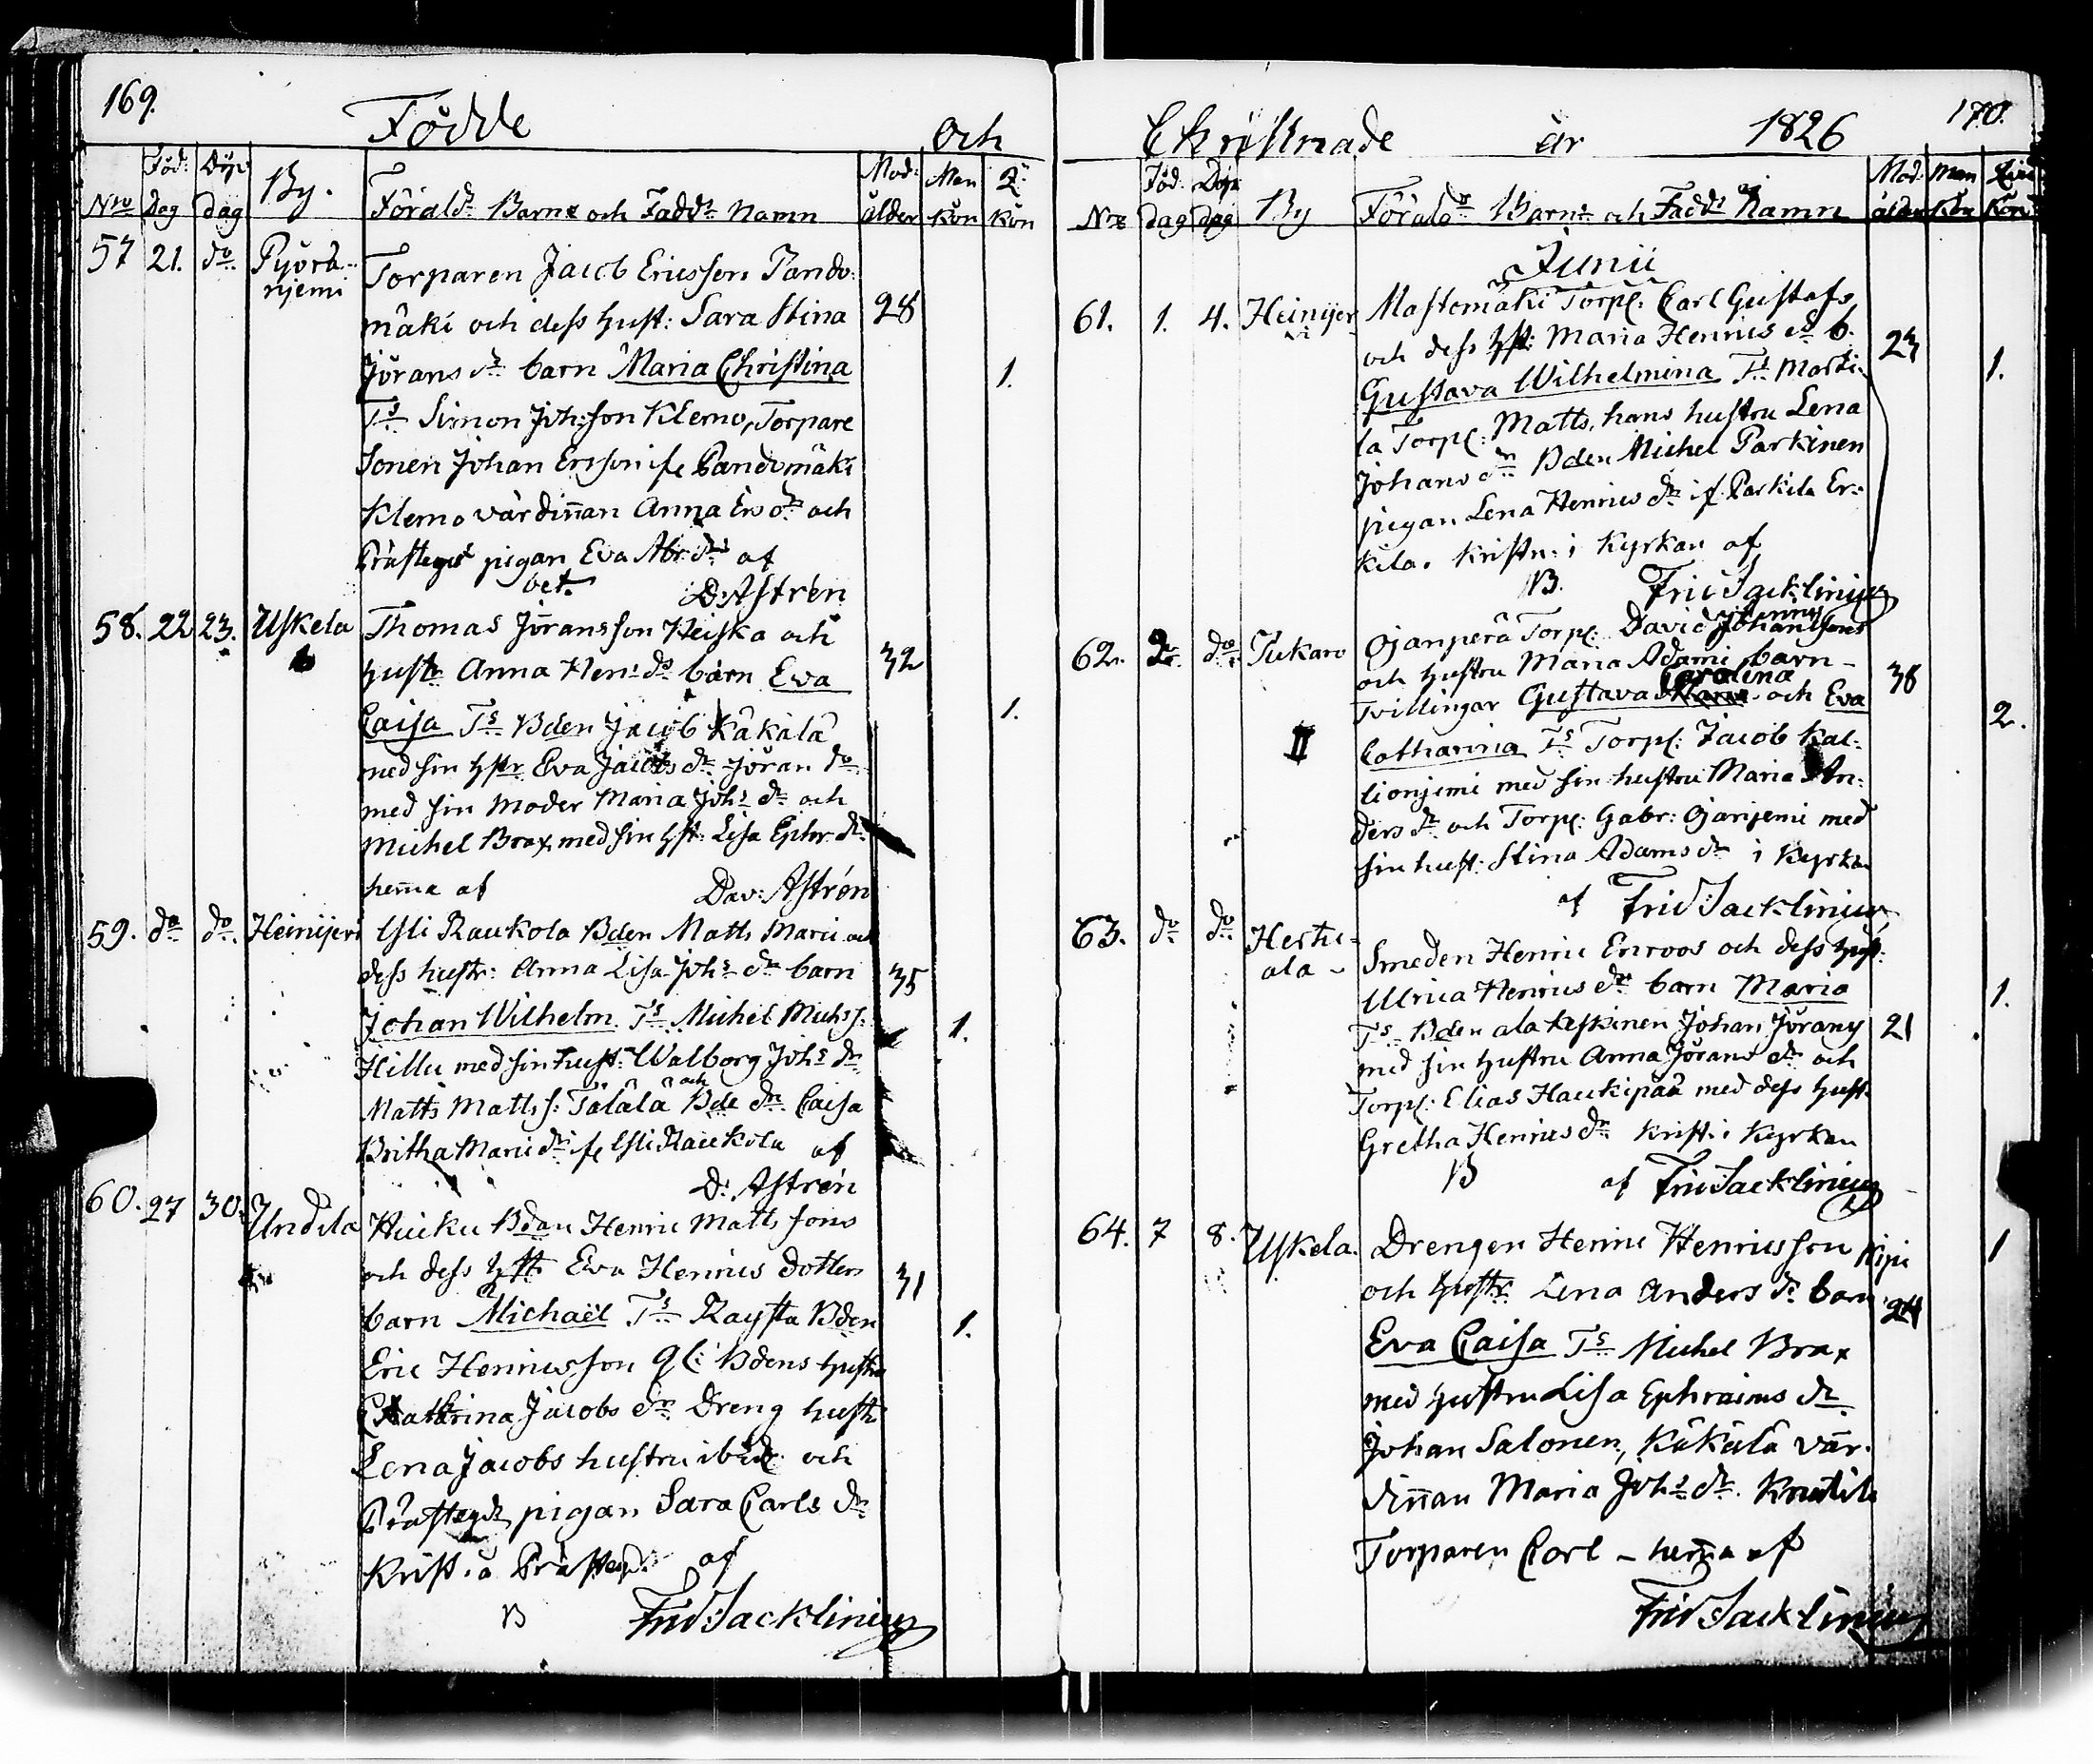 169.
Födde och
Nro Föd: Dag Döp dag By. Förälds. Barns och Fadds. Namn Mod: ålder Man kön Q: kön
57 21. do Pyörä-
njemi
Torparen Jacob Ericsson Pando-
mäki och dess hust: Sara Stina 28
Jörans dr barn Maria Christina 1.
Ts Simon Joh:son Klemo, Torpare
Sonen Johan Ersson if Pandomäki
Klemo värdinnan Anna Ers dr och
Prästegds pigan Eva Abr: dr af
D: Astrén
58. 22 23. Uskela Thomas Jöransson Heiska och
hustr Anna Hen: dr barn Eva 32
Caisa Ts Bden Jacob Käkälä 1.
med sin hstr Eva Jacobs dr Jöran do
med sin Moder Maria Johs dr och
Michel Brax med sin hst: Lisa Ephr. dr
hema af Dav: Astrén
59. do do Heinijervi Isli Raukola Bden Matts Marc: och
dess hustr: Anna Lisa Johs dr barn 35
Johan Wilhelm Ts Michel Michs s: 1.
Hillu med sin hust: Walborg Johs dr
Matts Matts s: Tälälä och Bde dr Caisa
Britha Marc: dr if Isli Raukola af
D: Astrén
60. 27 30. Undila Huiku Bdan Henric Mattsson
och dess hst: Eva Henrics dotters 31
barn Michaël Ts Raysta Bden 1.
Eric Henricsson Gl: Bdens hustru
Catharina Jacobs dr Dreng hustr
Lena Jacobs hustru ibid. och
Prästegds pigan Sara Carls dr
Krist. å Prästegd. af
B Frid Jacklinius
Christnade år 1826 170.
Nro Föd: dag Döp dag By Föräldrs Barns och Fadds Namn Mod: ålder Man kön Qvin kön
Junii
61. 1. 4. Heinijer-
vi
Mastomäki Torp: Carl Gustafs
och dess hst: Maria Henrics dr b. 23
Gustava Wilhelmina Ts Marti- 1.
la Torp: Matts, hans hustru Lena
Johans dr Bden Michel Parkinen
pigan Lena Henrics dr if Parkila Er-
kila. Kristn: i Kyrkan af
B. Frid Jacklinius
62. 2. do Tukaro Ojanperä Torp: David
och hustru Maria Adami barn 38
Tvillingar Gustava Carolina och Eva 2.
II Catharina Ts Torp: Jacob Kal-
lionjemi med sin hustru Maria An-
ders dr och Torp: Gabr: Ojanjemi med
sin hust: Stina Adams dr i Kyrkan
af Frid Jacklinius
63. do do Hertu-
ala
Smeden Henric Enroos och dess hust:
Ulrica Henrics dr barn Maria 1.
Ts Bden ala Keskinen Johan Jörans 21
med sin hustru Anna Jörans dr och
Torp: Elias Haukipää med dess hust:
Gretha Henrics dr Krist: i Kyrkan
B af Frid Jacklinius
64. 7 8. Uskela. Drengen Henric Henricsson 1
och hustr: Lena Anders dr barn 24
Eva Caisa Ts Michel Brax
med hustru Lisa Ephraims dr
Johan Salonen, Käkälä vär-
dinnan Maria Johs dr
Torparen Carl – hema af
Frid Jacklinius